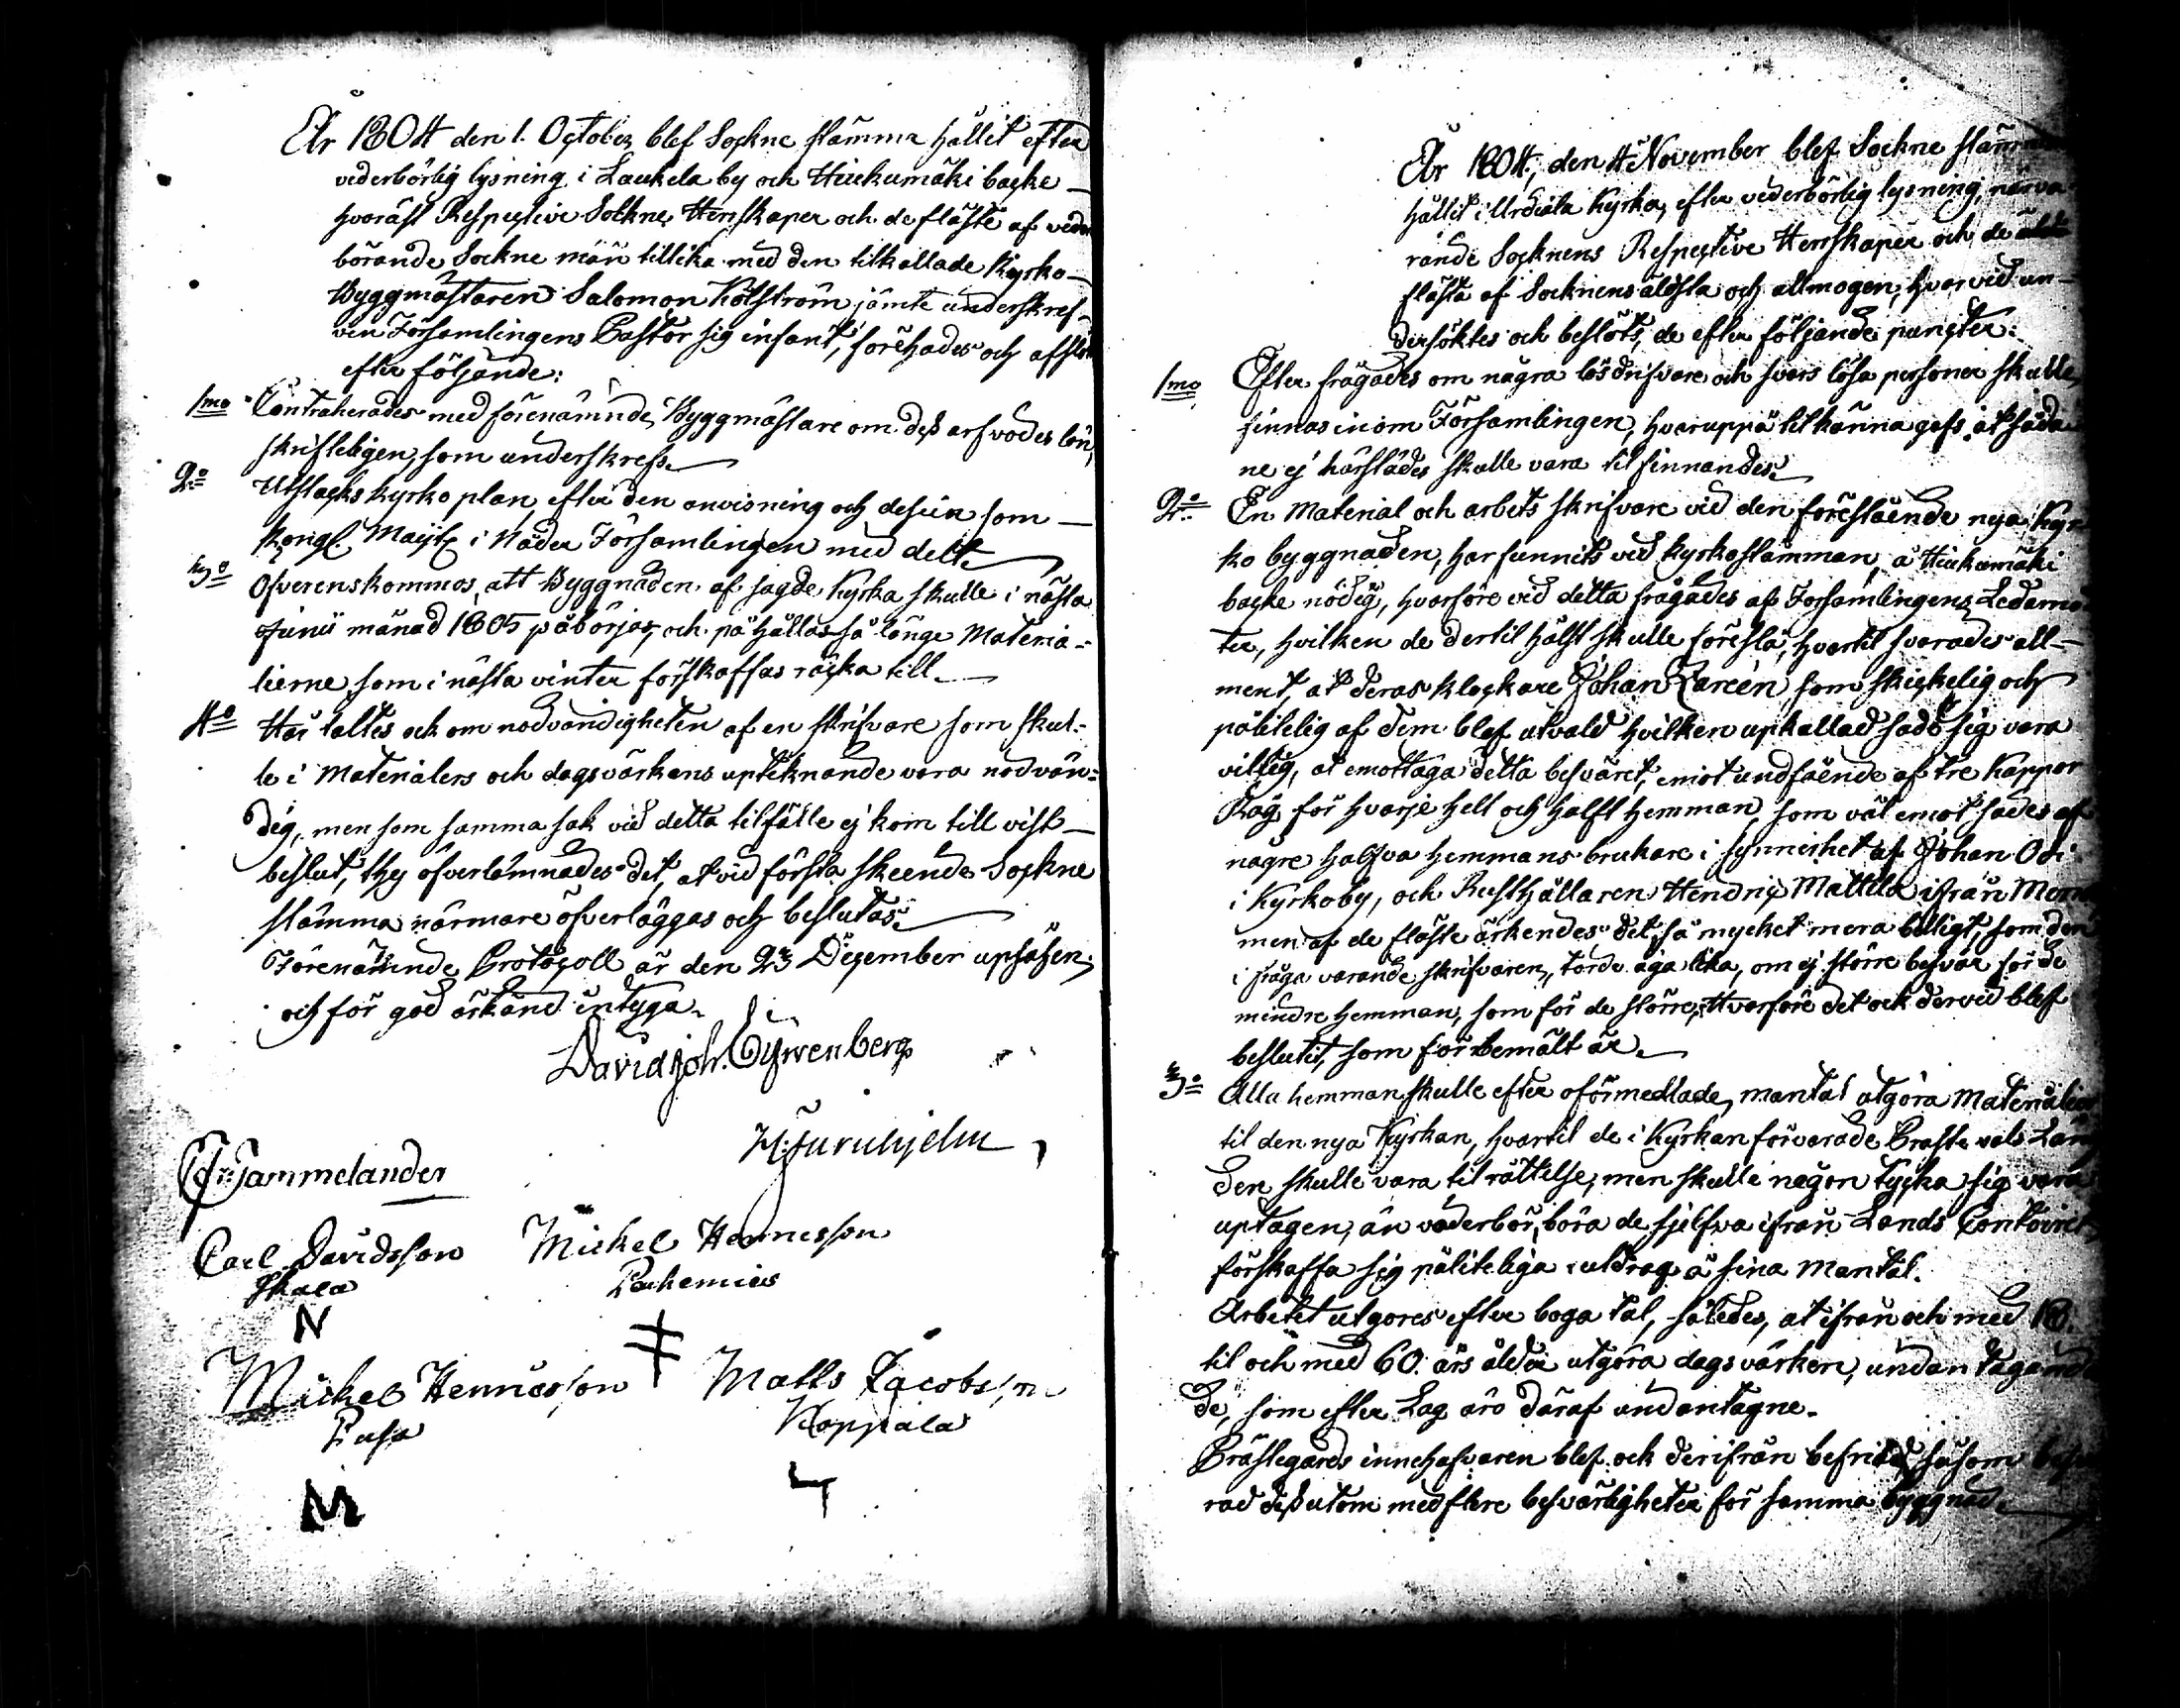 År 1804 den 1. October blef Sockne stämma hållit efter
vederbörlig lysning i Laukela by och Hiukumäki backe –
hvaräst Respective Sockne Herrskaper och de fläste af veder
börande Sockne män tillika med den tilkallade Kyrko-
Byggmästaren Salomon Kölström jämte underskref-
ven Församlingens Pastor sig infant, förehades och afslöts
efter följande:
1mo Contraherades med förenämnde Byggmästare om dess arfvodes lön,
skrifteligen, som underskrefs.
2o Utstacks kyrko plan, efter den anvisning och desein som –
Kongl. Maijt i Nåder Församlingen med delt.
3o Öfverenskommos, att Byggnaden af sagde Kyrka skulle i nästa
Junii månad 1805 påbörjas, och påhållas så länge Materia-
lierne som i nästa vinter förskaffas räcka till.
4o Här taltes ock om nödvändigheten af en skrifvare som skul-
le i Materialers och dagsvärkens upteknande vara nödvän-
dig, men som samma sak vid detta tilfälle ej kom till vist –
beslut, thy öfverlämnades det, at vid första skeende Sockne
stämma närmare öfverläggas och beslutas.
Förenämnde Protocoll är den 23 December upläsen,
och för god ärkänd intyga.
David Joh. Cÿrenberg
H: Furuhjelm
C Gammelander
Carl Davidsson Michel Hennesson
Skala Pakemies
N
Michel Henricsson Matts Jacobsson
Pusa Koppala
M
År 1804, den 4 November blef Sockne stämma
hållit i Urdiala Kyrka, efter vederbörlig lysning, närva-
rande Socknens Respective Herrskaper och de
fläste af Socknens äldsta och allmogen, hvarvid un-
dersöktes och beslöts, de efter följande puncter:
1mo Efter frågades om några lösdrifvare och svars lösa personer skulle
finnas inom Församlingen, hvaruppå tilkänna gafs, at såda-
ne ej härstädes skulle vara til finnandes.
2o En Material och arbets skrifvare vid den föreslående nya Kyr-
ko byggnaden, har funnits ved kyrkostämman, å Hiukumäki
backe nödig, hvarföre vid detta frågades af Forsamlingens Ledamö-
ter, hvilken de dertil hälst skulle föreslå, hvartil svarades all-
ment, at deras klockare Johan Zareen som skickelig och
pålitelig af dem blef utvald hvilken upkallad sade sig vara
villig, at emottaga detta besväret, emot undfående af tre Kappor
Råg för hvarje helt och halft hemman, som väl emot sades af
någre halfva hemmans brukare i synnerhet af Johan Odi
i Kyrkoby, och Rusthållaren Hendric Mattila ifrån
men af de fläste ärkendes det så mycket mera billigt, som den
i fråga varande skrifvaren, torde äga lika, om ej större besvär för de
mindre hemman, som för de större; Hvarföre det ock dervid blef
beslutit, som förbemält är.
3o Alla hemman skulle efter oförmedlade mantal utgöra Materialier
til den nya Kyrkan, hvartil de i Kyrkan förvarade
den skulle vara til rättelse, men skulle någon tycka sig vara
uptagen, än vederbör, böra de sjelfva ifrån Lands Contoiret
förskaffa sig påliteliga utdrag å sina Mantal.
Arbetet utgöres efter boga tal, således, at ifrån och med 18.
til och med 60. års ålder utgöra dagsvärken, undan tagande
de, som efter Lag äro däraf undantagne.
Prästegårds innehafvaren blef ock derifrån befriad, såsom
rad dessutom med flere besvärligheter för samma byggnad.